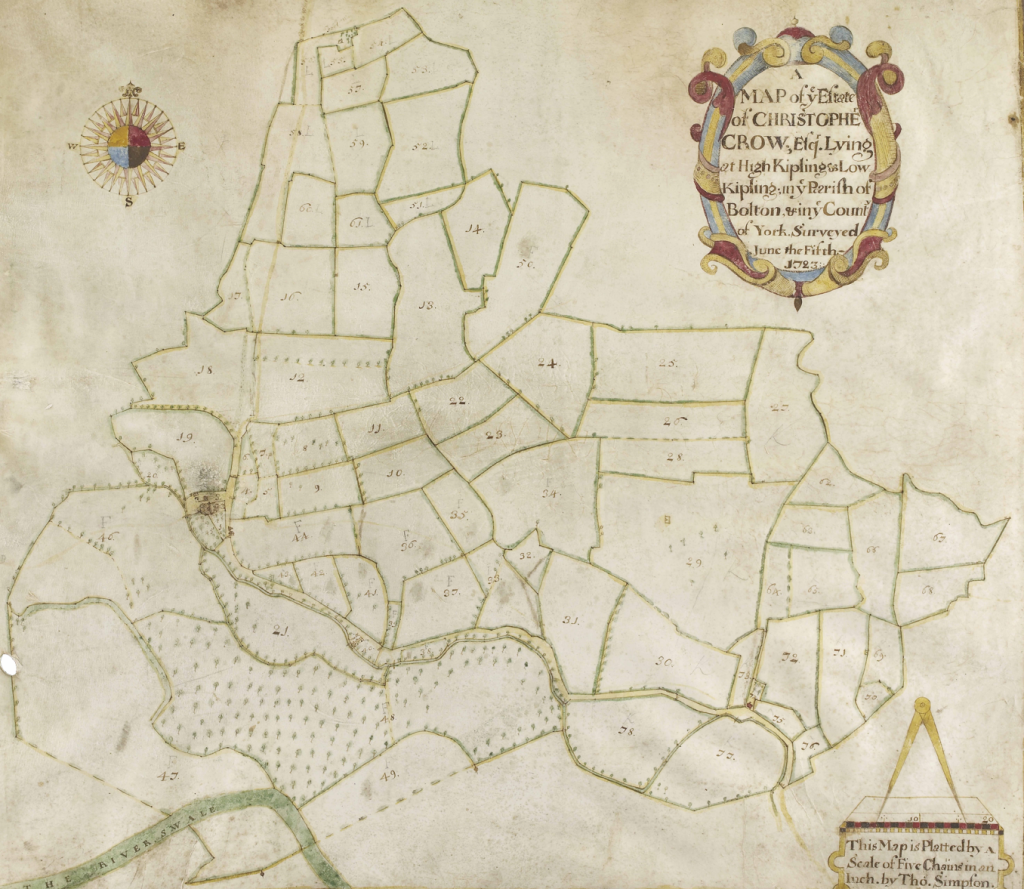 A
MAP of yͤ Estate
of CHRISTOPHͤ
CROW, Esq. Lying
at High Kipling & Low
Kipling; in yͤ Parish of
Bolton & in yͤ Counᵗ
of York. Surveyed
June the Fifth
1723
W
E
S
53.
57.
59.
52.
51.
14.
50.
15.
16.
17.
13.
18
12
24.
25.
27.
22.
23.
26.
28.
11.
10.
9.
19.
34.
35.
F
36.
F
44
F
46.
42.
41
F
37.
33.
32.
29.
31.
30.
21.
48
49.
47.
67.
66.
68.
72.
71.
69.
70.
75.
76.
77.
78.
THE RIVER SWALE
10
20
This Map is Platted by A
Scale of Five Chains in an
Inch. by Tho. Simpson.